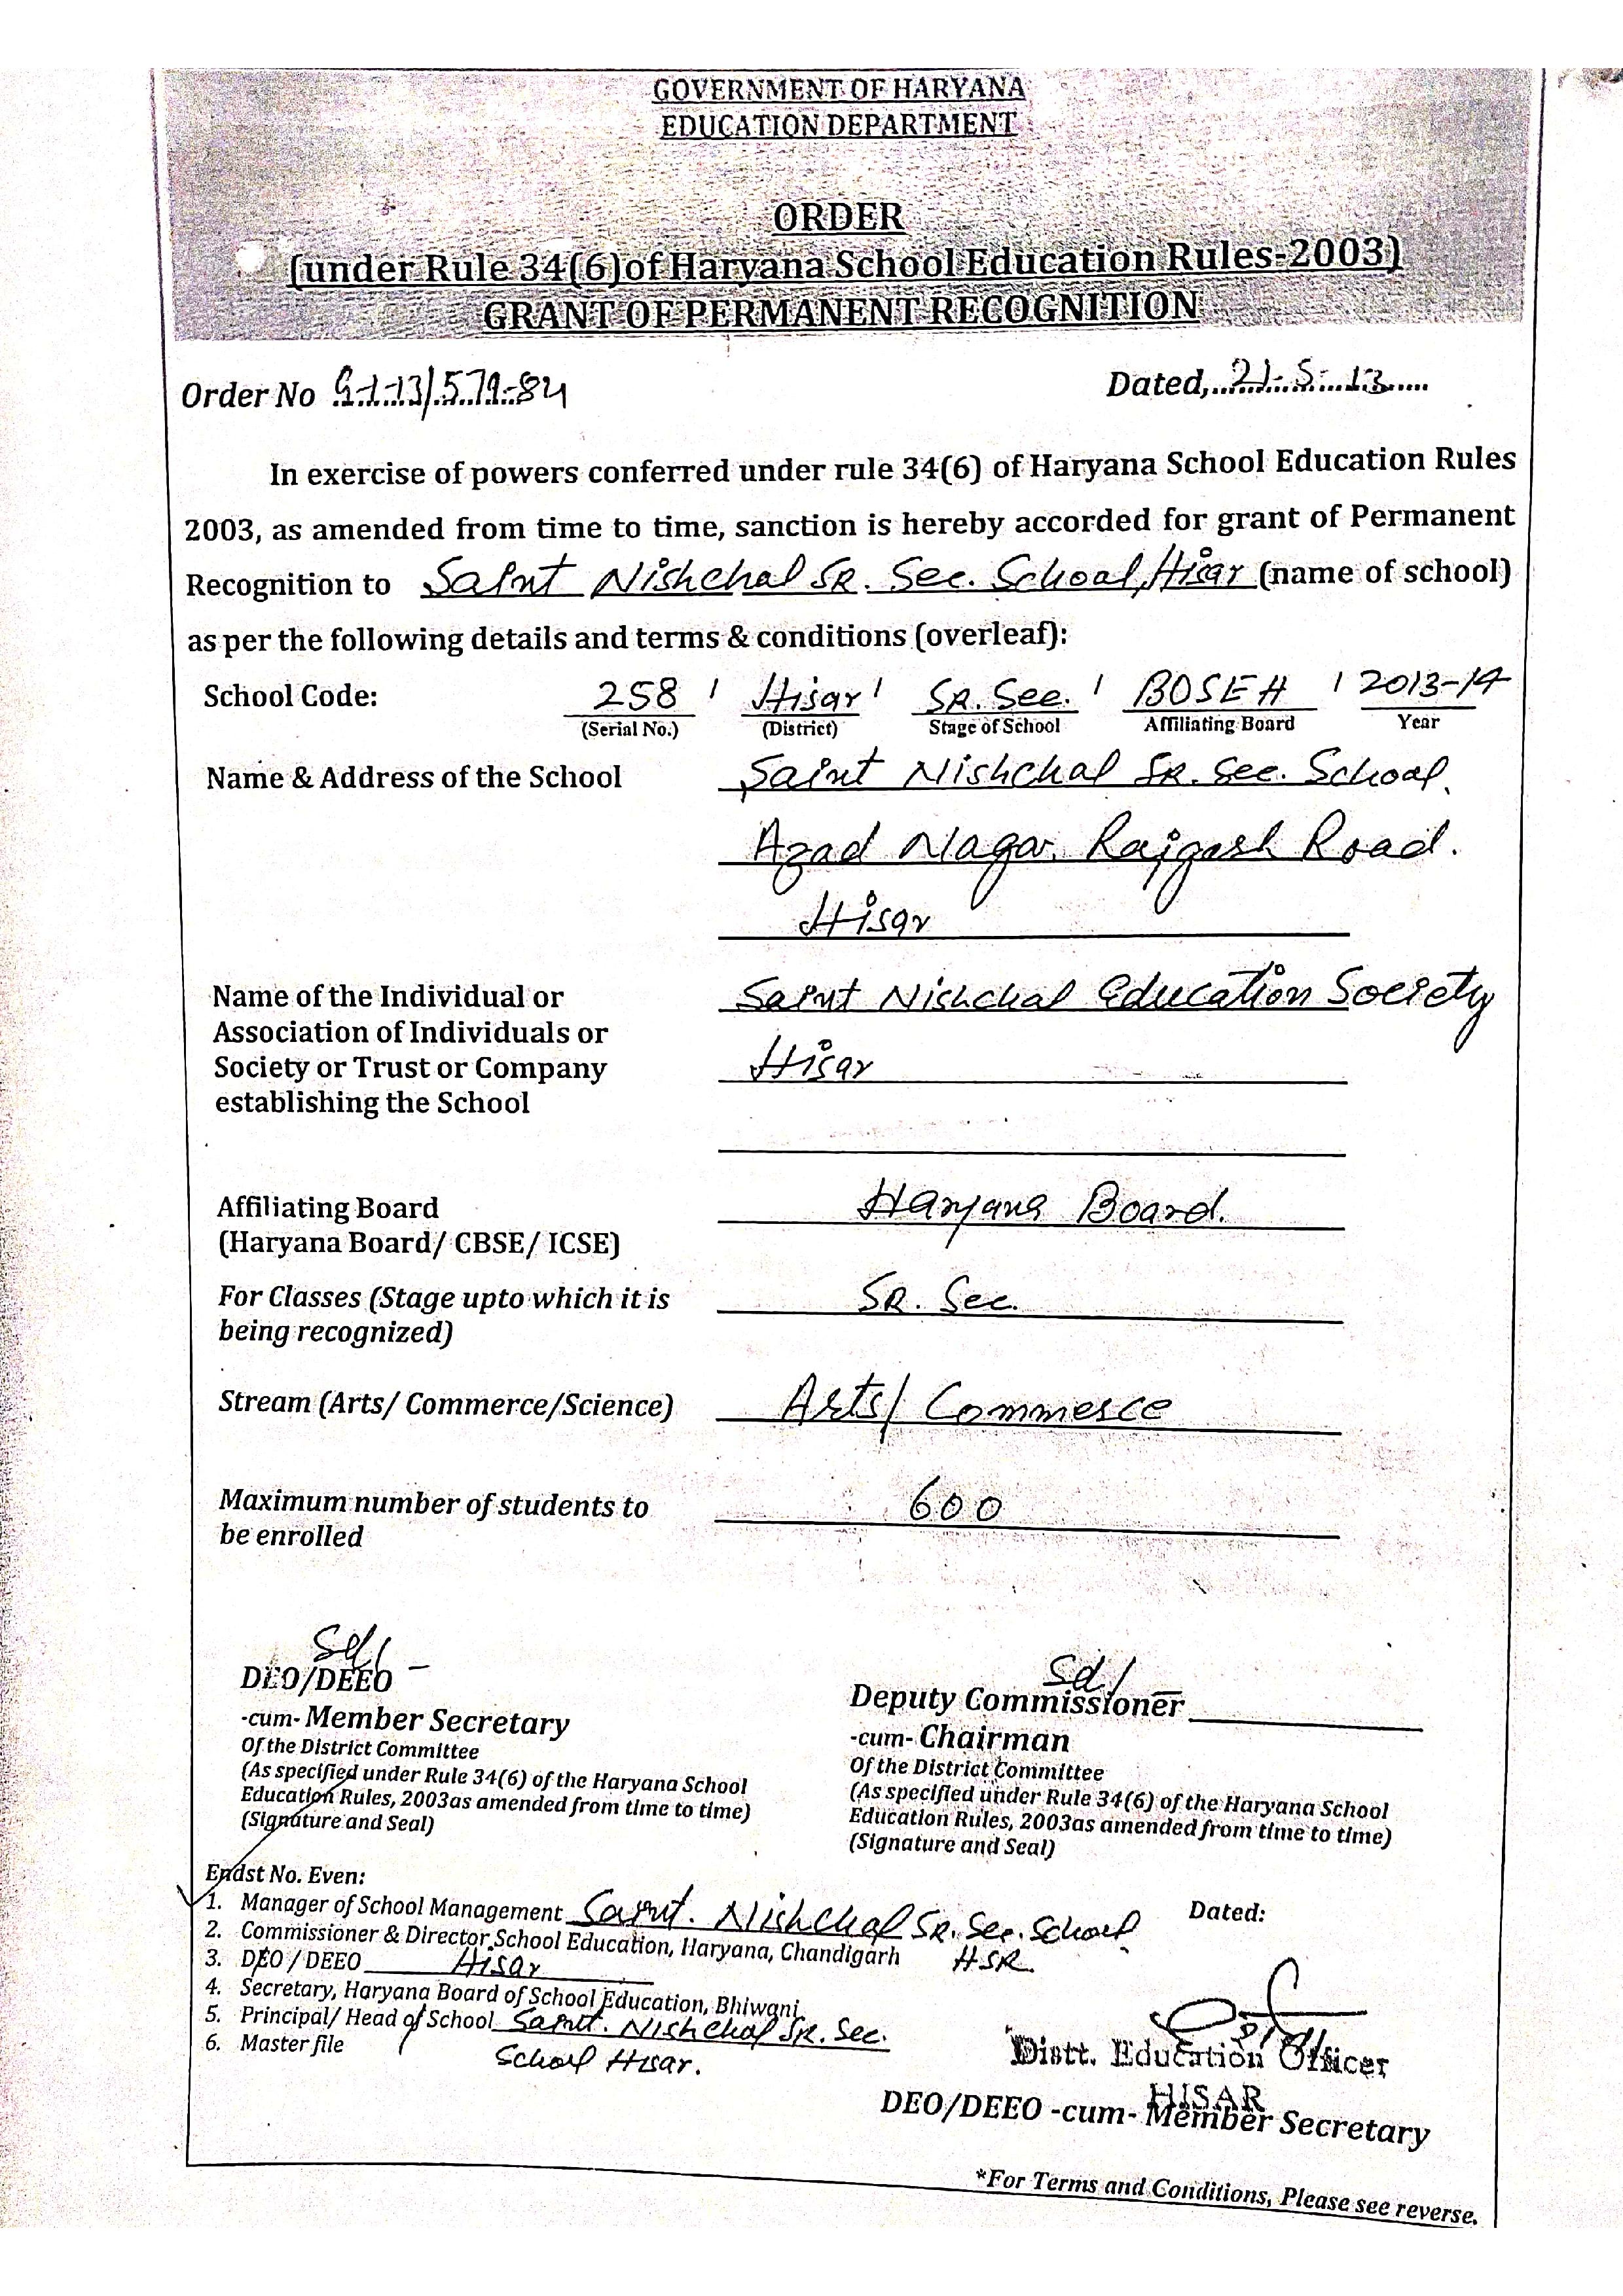 GOVERNMENT OF HARYANA
EDUCATION DEPARTMENT
ORDER
(under Rule 34(6)of Haryana School Education Rules-2003)
GRANT OF PERMANENT RECOGNITION
Order No
Dated, 21-5-13
In exercise of powers conferred under rule 34(6) of Haryana School Education Rules
2003, as amended from time to time, sanction is hereby accorded for grant of Permanent
Recognition to Saint Nishchal SR. Sec. School, Hisar (name of school)
as per the following details and terms & conditions (overleaf):
School Code: 258 / Hisar / SR. Sec. / BOSEH / 2013-14
(Serial No.) (District) Stage of School Affiliating Board Year
Name & Address of the School Saint Nishchal SR. Sec. School.
Azad Nagar, Rajgarh Road.
Hisar
Name of the Individual or Saint Nishchal Education Society
Association of Individuals or
Society or Trust or Company Hisar
establishing the School
Affiliating Board Haryana Board.
(Haryana Board/ CBSE/ ICSE)
For Classes (Stage upto which it is SR. Sec.
being recognized)
Stream (Arts/ Commerce/Science) Arts/ Commerce
Maximum number of students to 600
be enrolled
Sd/-
DEO/DEEO
-cum- Member Secretary
Of the District Committee
(As specified under Rule 34(6) of the Haryana School
Education Rules, 2003as amended from time to time)
(Signature and Seal)
Sd/
Deputy Commissioner
-cum- Chairman
Of the District Committee
(As specified under Rule 34(6) of the Haryana School
Education Rules, 2003as amended from time to time)
(Signature and Seal)
Endst No. Even:
Dated:
1. Manager of School Management Saint. Nishchal SR. Sec. School
HSR.
2. Commissioner & Director School Education, Haryana, Chandigarh
3. DEO / DEEO Hisar
4. Secretary, Haryana Board of School Education, Bhiwani
5. Principal/ Head of School Saint. Nishchal SR. Sec.
School Hisar.
6. Master file
Distt. Education Officer
HISAR
DEO/DEEO -cum- Member Secretary
*For Terms and Conditions, Please see reverse.